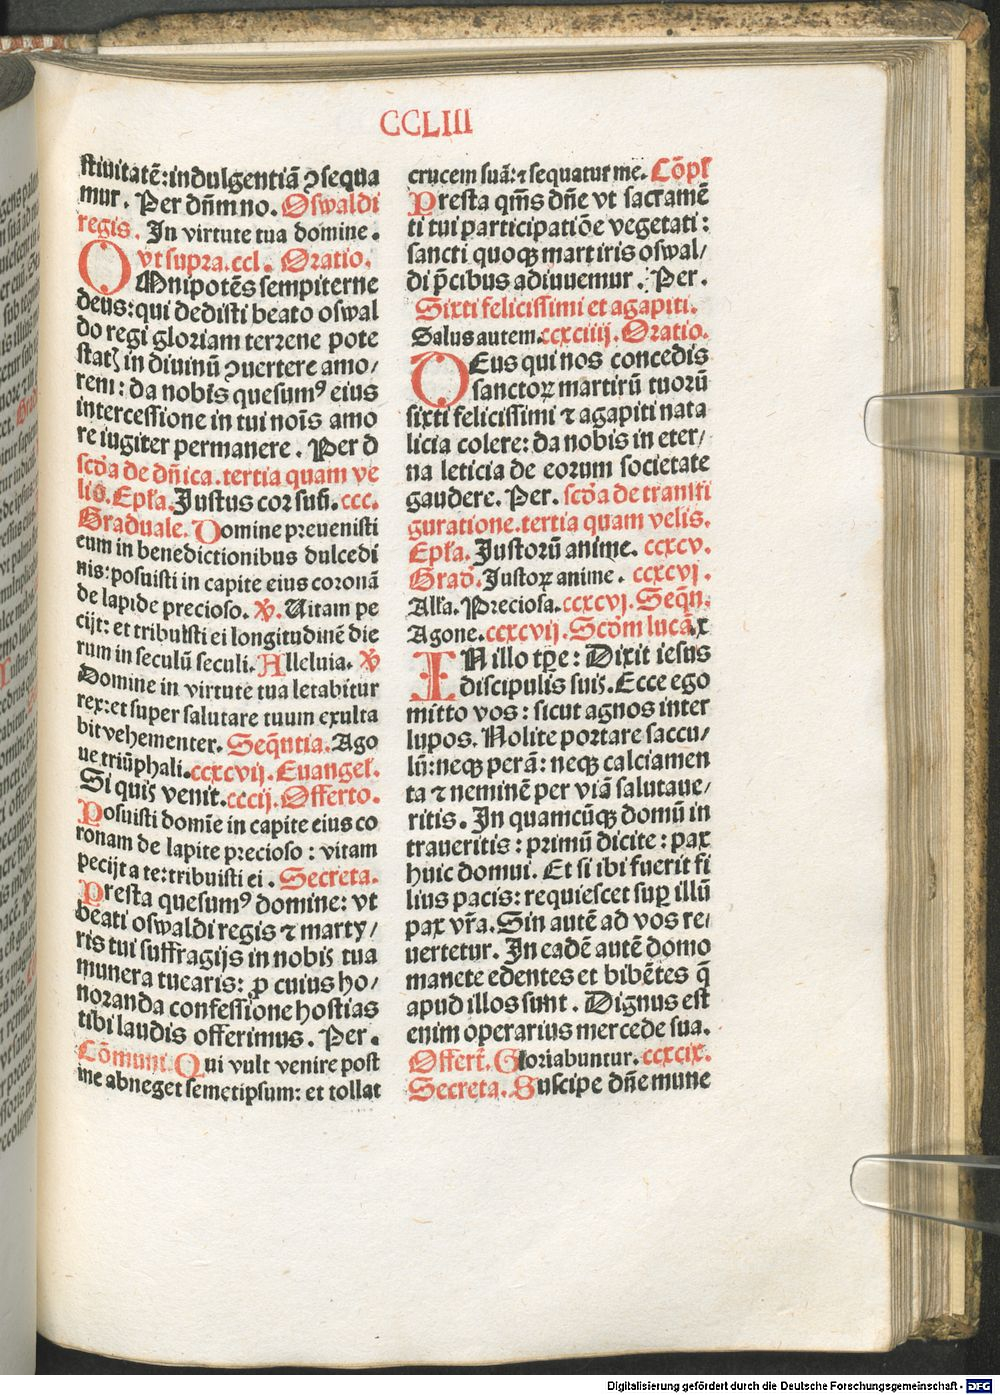 CCLIII
stiuitatē:indulgentiā ꝯsequa
mur. Per dn̄m no. Oswaldi
regis. In virtute tua domine.
vt supra.ccl. Oratio.
OMnipotēs sempiterne
deus:qui dedisti beato oswal
do regi gloriam terrene pote
statꝫ in diuinū ꝯuertere amo/
rem: da nobis quesumꝰ eius
intercessione in tui nois amo
re iugiter permanere. Per d
scd'a de dn̄ica.tertia quam ve
lis.Epl'a.Justus cor suū.ccc.
Graduale. Domine preuenisti
eum in benedictionibus dulcedi
nis:posuisti in capite eius coronā
de lapide precioso. V. Uitam pe
cijt: et tribuisti ei longitudinē die
rum in seculū seculi. Alleluia. V
Domine in virtute tua letabitur
rex:et super salutare tuum exulta
bit vehementer. Seqūtia. Ago
ue triūphali.ccxcvij. Euangel'.
Si quis venit.cccij. Offerto.
Posuisti domīe in capite eius co
ronam de lapite precioso: vitam
pecijt a te:tribuisti ei. Secreta.
Presta quesumꝰ domine: vt
beati oswaldi regis ⁊ marty/
ris tui suffragijs in nobis tua
munera tucaris: ꝓ cuius ho/
noranda confessione hostias
tibi laudis offerimus. Per.
Cōmuni. Qui vult venire post
me abneget semetipsum: et tollat
crucem suā:⁊ sequatur me. Cōpl'
Presta qm̄s dn̄e vt sacramē
ti tui participatiōe vegetati:
sancti quoqꝫ martiris oswal/
di p̄cibus adiuuemur. Per.
Sixti felicissimi et agapiti.
Salus autem.ccxciiij. Oratio.
DEus qui nos concedis
sanctoꝝ martirū tuorū
sixti felicissimi ⁊ agapiti nata
licia colere: da nobis in eter/
na leticia de eorum societate
gaudere. Per. scd'a de transfi
guratione.tertia quam velis.
Epl'a. Justorū anime. ccxcv.
Grad'. Justoꝝ anime. ccxcvj.
All'a. Preciosa.ccxcvj. Seqn̄.
Agone.ccxcvij. Scd'm lucā.x
IN illo tp̄e: Dixit iesus
discipulis suis. Ecce ego
mitto vos: sicut agnos inter
lupos. Nolite portare saccu/
lū:neqꝫ perā: neqꝫ calciamen
ta ⁊ neminē per viā salutaue/
ritis. In quamcūqꝫ domū in
traueritis: primū dicite: pax
huic domui. Et si ibi fuerit fi
lius pacis: requiescet suꝑ illū
pax vr̄a. Sin autē ad vos re/
uertetur. In eadē autē domo
manete edentes et bibētes q̄
apud illos sunt. Dignus est
enim operarius mercede sua.
Offert'. Gloriabuntur. ccxcix.
Secreta. Suscipe dn̄e mune
Digitalisierung gefördert durch die Deutsche Forschungsgemeinschaft - DFG